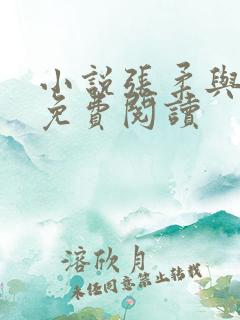 小說張柔與
免費閱讀
溶欣月
未任同意禁止转载